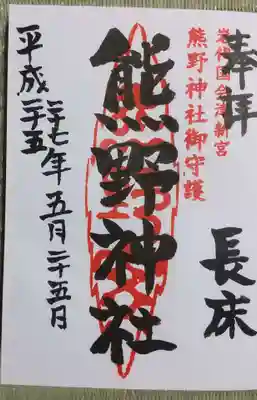 奉拝
長床
岩代国会津新宮
熊野神社御守護
熊野神社
平成二十七年五月二十五日
二十五